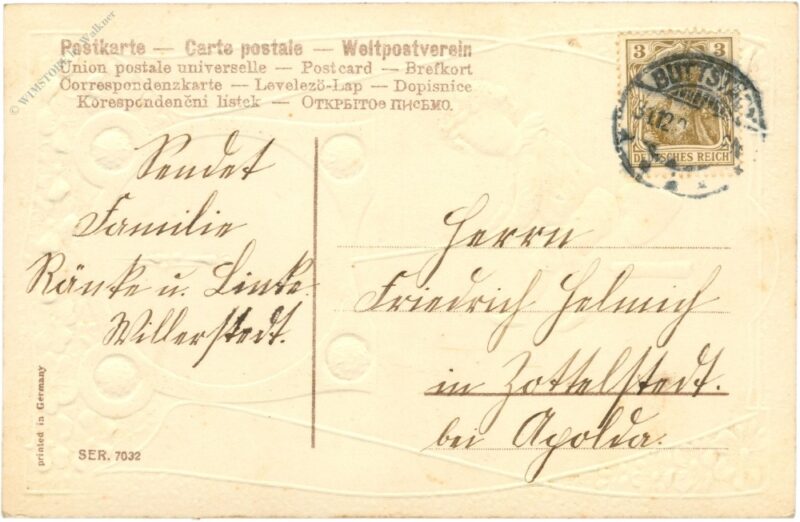 © WIMSTORE by Walkner
Postkarte — Carte postale — Weltpostverein
Union postale universelle — Postcard — Brefkort
Correspondenzkarte — Levelező-Lap — Dopisnice
Korespondenční lístek — Открытое письмо.
3 3
DEUTSCHES REICH
BUTTST
31.12.
Sendet
Familie
Ränke u. Linke.
Willerstedt.
Herrn
Friedrich Helmich
in Zottelstedt.
bei Apolda.
printed in Germany
SER. 7032